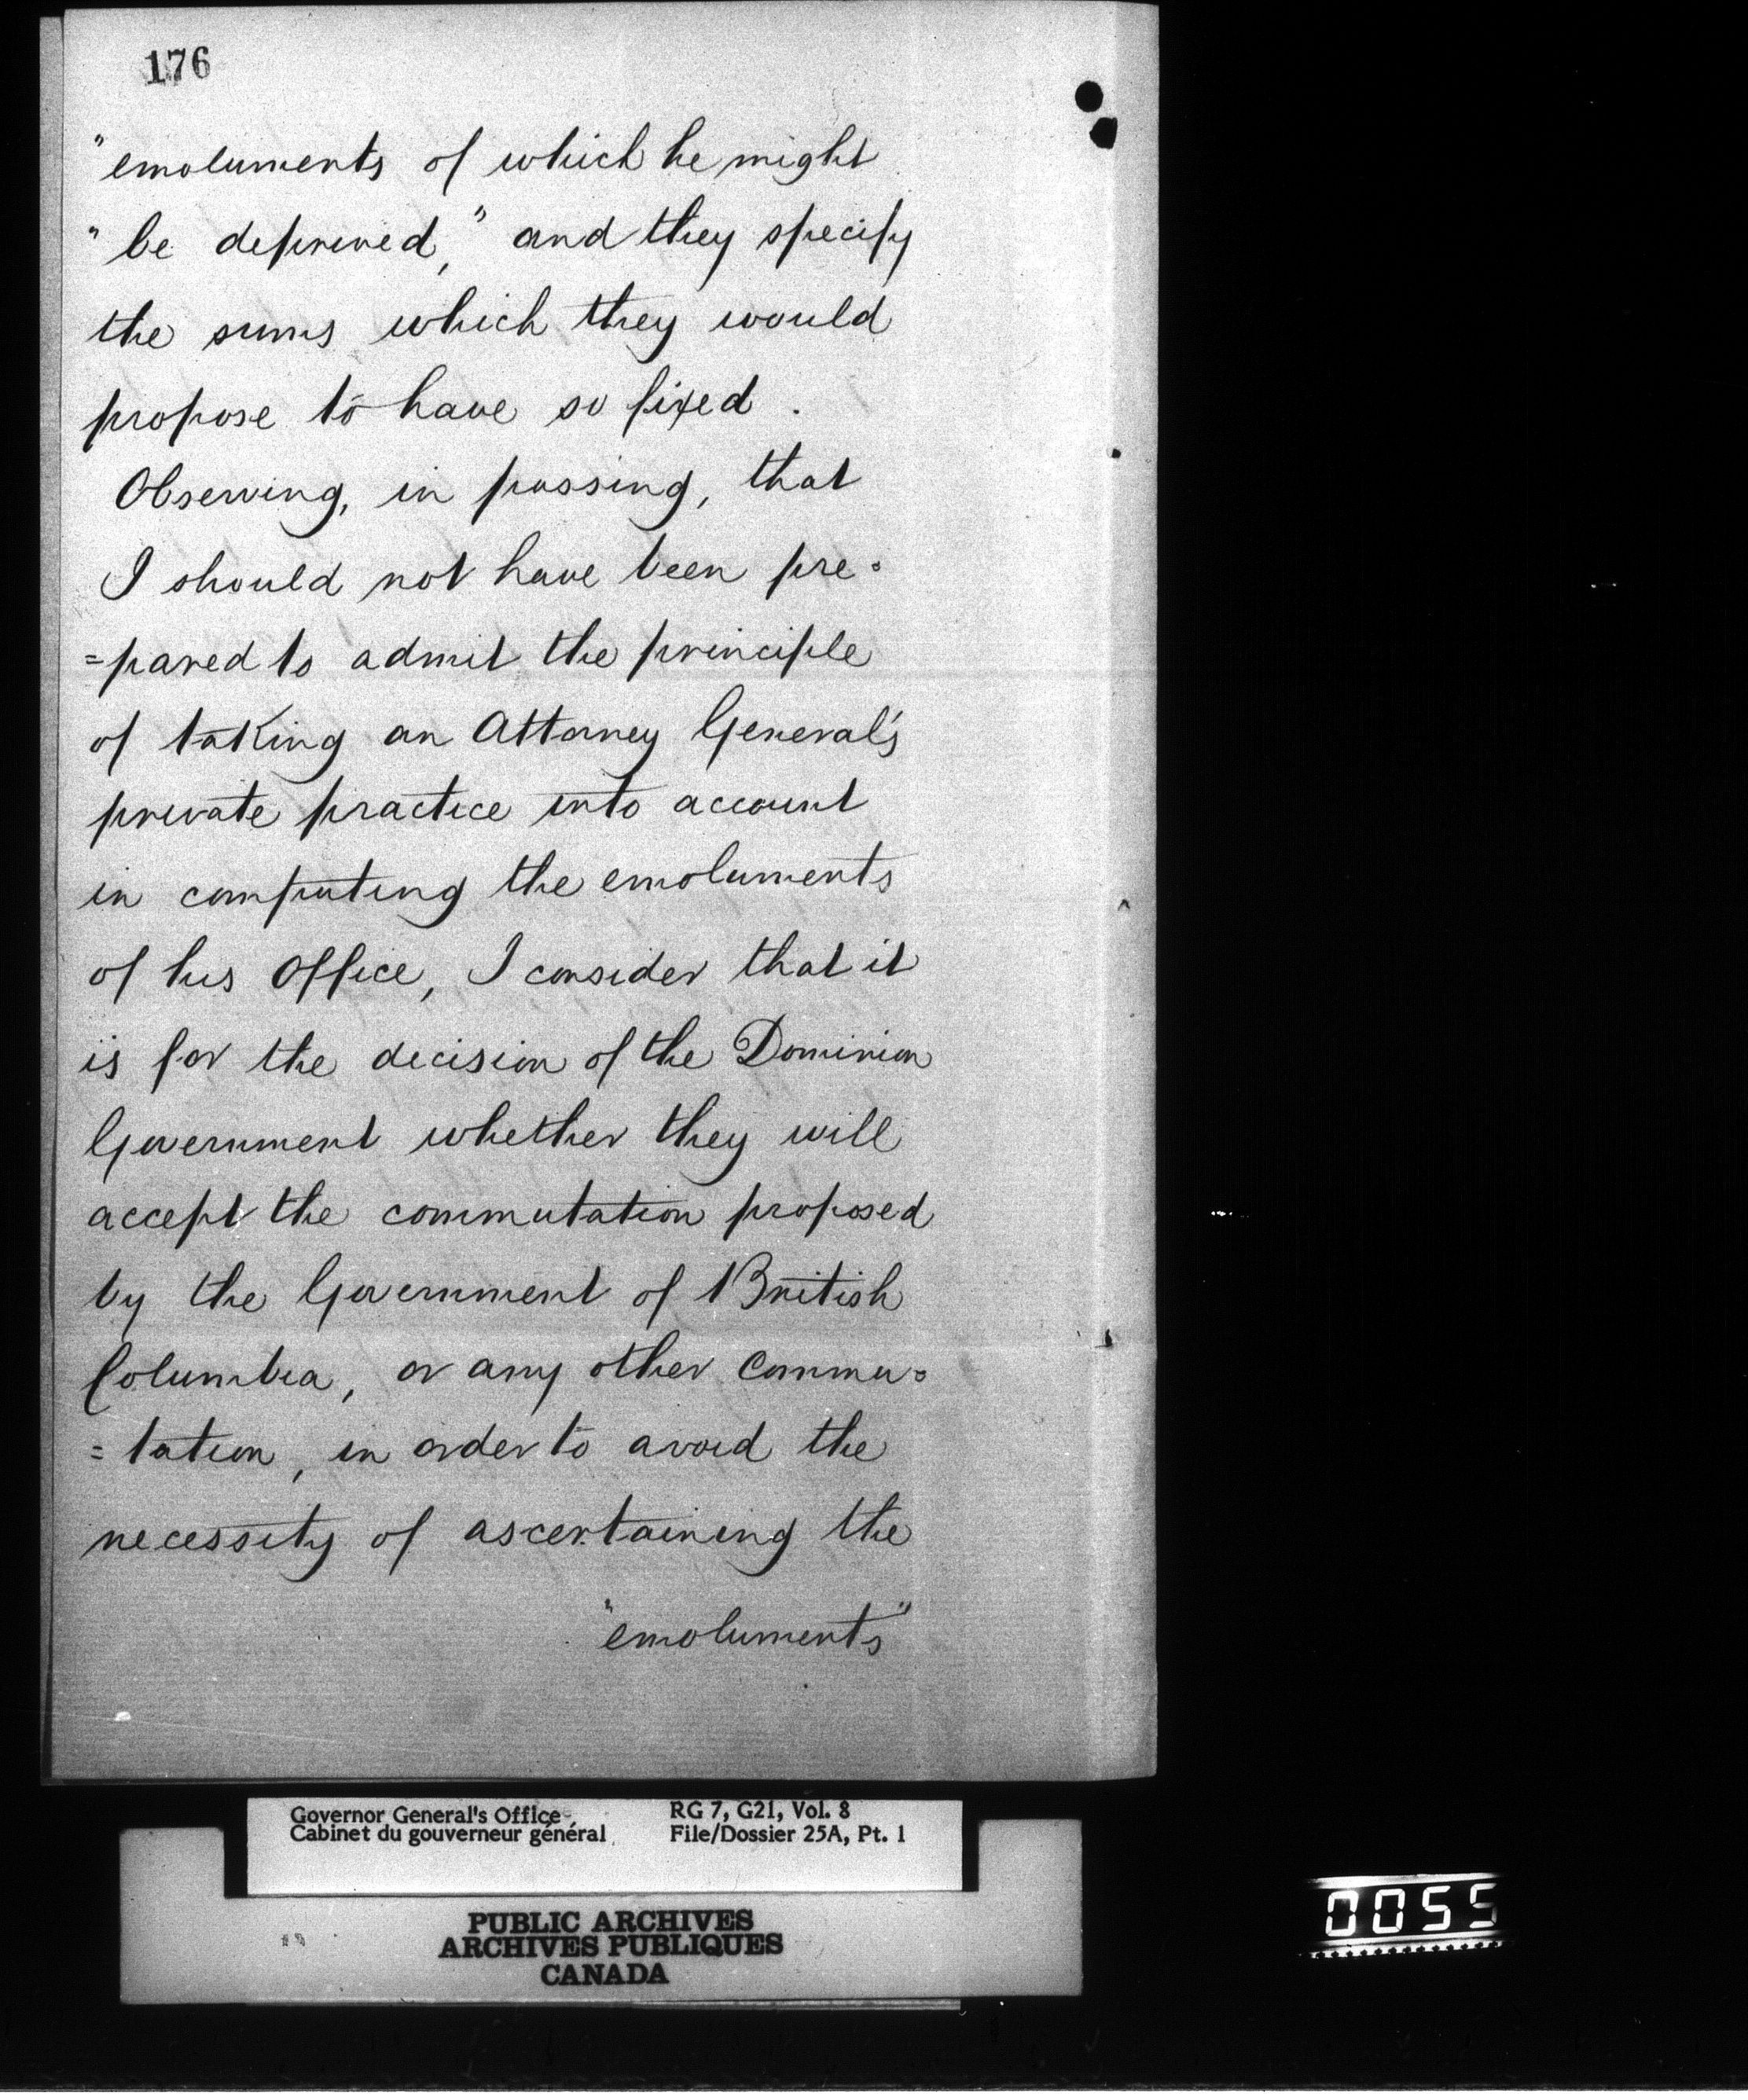 176
"emoluments of which he might
" be deprived," and they specify
the sums which they would
propose to have so fixed.
Observing, in passing, that
I should not have been pre=
=pared to admit the principle
of taking an Attorney General's
private practice into account
in computing the emoluments
of his Office, I consider that it
is for the decision of the Dominion
Government whether they will
accept the commutation proposed
by the Government of British
Columbia, or any other Commu=
=tation, in order to avoid the
necessity of ascertaining the
"emoluments"
Governor General's Office
Cabinet du gouverneur général
RG 7, G21, Vol. 8
File/Dossier 25A, Pt. 1
PUBLIC ARCHIVES
ARCHIVES PUBLIQUES
CANADA
0055